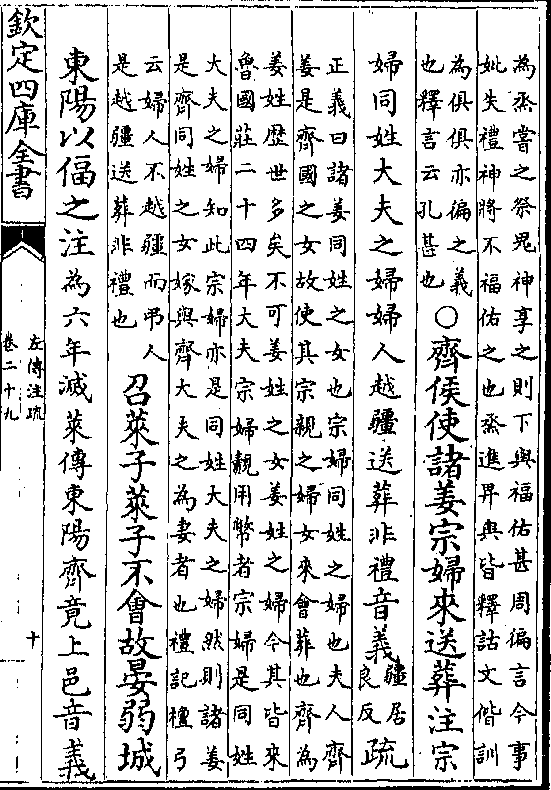 為烝嘗之祭鬼神享之則下與福佑甚周徧言今事
妣失禮神將不福佑之也烝進畀與皆釋詁文偕訓
為俱俱亦徧之義
也釋言云孔甚也
○齊侯使諸姜宗婦來送葬注宗
婦同姓大夫之婦婦人越疆送葬非禮音義
疆居
良反
疏
正義曰諸姜同姓之女也宗婦同姓之婦也夫人齊
姜是齊國之女故使其宗親之婦女來會葬也齊為
姜姓歴世多矣不可姜姓之女姜姓之婦令其皆來
魯國莊二十四年大夫宗婦覿用幣者宗婦是同姓
大夫之婦知此宗婦亦是同姓大夫之婦然則諸姜
是齊同姓之女嫁與齊大夫之為妻者也禮記檀弓
云婦人不越疆而弔人
是越疆送葬非禮也
召萊子萊子不會故晏弱城
東陽以偪之注為六年滅萊傳東陽齊竟上邑音義
欽定四庫全書
左傳注疏
卷二十九
十